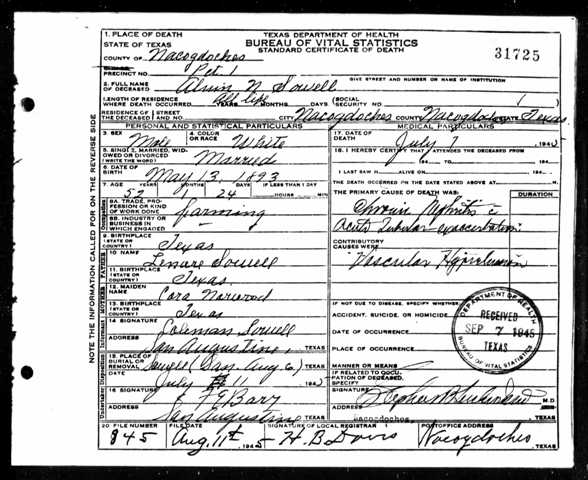 1. PLACE OF DEATH
TEXAS DEPARTMENT OF HEALTH
BUREAU OF VITAL STATISTICS
STANDARD CERTIFICATE OF DEATH
31725
STATE OF TEXAS
COUNTY OF Nacogdoches
PRECINCT NO. Pct. 1
GIVE STREET AND NUMBER OR NAME OF INSTITUTION
2. FULL NAME OF DECEASED Alvin N. Sowell
LENGTH OF RESIDENCE WHERE DEATH OCCURRED life YEARS MONTHS DAYS (SOCIAL SECURITY NO.
RESIDENCE OF THE DECEASED STREET AND NO. CITY Nacogdoches COUNTY Nacogdoches STATE Texas
PERSONAL AND STATISTICAL PARTICULARS
MEDICAL PARTICULARS
3. SEX Male 4. COLOR OR RACE White
5. SINGLE, MARRIED, WIDOWED OR DIVORCED (WRITE THE WORD) Married
6. DATE OF BIRTH May 13, 1893
7. AGE YEARS MONTHS DAYS IF LESS THAN 1 DAY
52 1 24 HOURS MIN
8A. TRADE, PROFESSION OR KIND OF WORK DONE farming
8B. INDUSTRY OR BUSINESS IN WHICH ENGAGED
9. BIRTHPLACE (STATE OR COUNTRY) Texas
10. NAME Lenare Sowell
11. BIRTHPLACE (STATE OR COUNTRY) Texas
12. MAIDEN NAME Cora Norwood
13. BIRTHPLACE (STATE OR COUNTRY) Texas
14. SIGNATURE Coleman Sowell
ADDRESS San Augustine, TEXAS
15. PLACE OF BURIAL OR REMOVAL Sowell (San. Aug. Co) TEXAS
DATE July 11 194
16. SIGNATURE
ADDRESS San Augustine TEXAS
17. DATE OF DEATH July 7 194
18. I HEREBY CERTIFY THAT I ATTENDED THE DECEASED FROM
194 TO 194
I LAST SAW H ALIVE ON 194
THE DEATH OCCURRED ON THE DATE STATED ABOVE AT M.
THE PRIMARY CAUSE OF DEATH WAS: DURATION
Chronic Nephritis c
Acute Tubular exacerbation
CONTRIBUTORY CAUSES WERE
Vascular Hypertension
IF NOT DUE TO DISEASE, SPECIFY WHETHER:
ACCIDENT, SUICIDE, OR HOMICIDE
DATE OF OCCURRENCE
PLACE OF OCCURRENCE
MANNER OR MEANS
IF RELATED TO OCCUPATION OF DECEASED, SPECIFY
SIGNATURE M.D.
ADDRESS Nacogdoches TEXAS
DEPARTMENT OF HEALTH
RECEIVED
SEP 7 1945
TEXAS
BUREAU OF VITAL STATISTICS
20 FILE NUMBER FILE DATE SIGNATURE OF LOCAL REGISTRAR POSTOFFICE ADDRESS
845 Aug. 11th 1945 H. B. Davis Nacogdoches TEXAS
NOTE THE INFORMATION CALLED FOR ON THE REVERSE SIDE